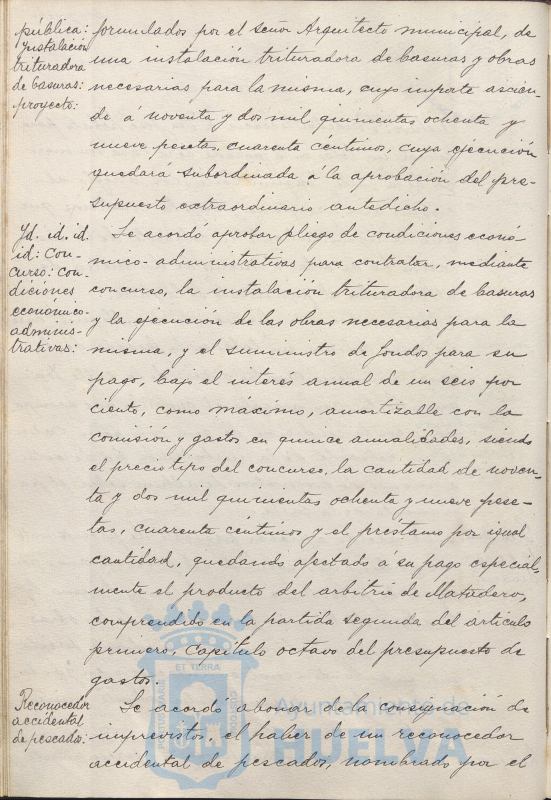 pública:
Instalación
trituradora
de basuras:
proyecto:
formulados por el señor Arquitecto municipal, de
una instalación trituradora de basuras y obras
necesarias para la misma, cuyo importe ascien-
de á noventa y dos mil quinientas ochenta y
nueve pesetas, cuarenta céntimos, cuya ejecución
quedará subordinada á la aprobación del pre-
supuesto extraordinario antedicho.
Id. id. id.
id: Con-
curso: con-
diciones
economico-
adminis-
trativas:
Se acordó aprobar pliego de condiciones econó-
mico-administrativas para contratar, mediante
concurso, la instalación trituradora de basuras
y la ejecución de las obras necesarias para la
misma, y el suministro de fondos para su
pago, bajo el interés anual de un seis por
ciento, como máximo, amortizable con la
comisión y gastos en quince anualidades, siendo
el precio tipo del concurso, la cantidad de noven-
ta y dos mil quinientas ochenta y nueve pese-
tas, cuarenta céntimos y el préstamo por igual
cantidad, quedando afectado á su pago especial-
mente el producto del arbitrio de Matadero,
comprendido en la partida segunda del artículo
primero, capítulo octavo del presupuesto de
gastos.
Reconocedor
accidental
de pescados:
Se acordó abonar de la consignación de
imprevistos, el haber de un reconocedor
accidental de pescados, nombrado por el
ET TERRA
Ayuntamiento de
HUELVA